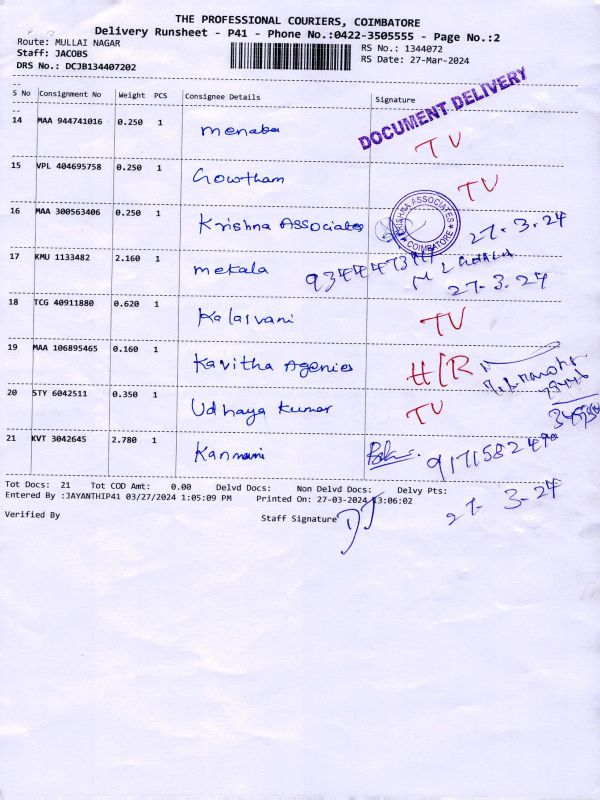 THE PROFESSIONAL COURIERS, COIMBATORE
Delivery Runsheet - P41 - Phone No.:0422-3505555 - Page No.:2
Route: MULLAI NAGAR
RS No.: 1344072
Staff: JACOBS
RS Date: 27-Mar-2024
DRS No.: DCJB134407202
S No Consignment No Weight PCS Consignee Details Signature
DOCUMENT DELIVERY
14 MAA 944741016 0.250 1 Menaba TV
15 VPL 404695758 0.250 1 Gowtham TV
16 MAA 300563406 0.250 1 Krishna Associates KRISHNA ASSOCIATES * COIMBATORE * 27.3.24
17 KMU 1133482 2.160 1 mekala 27-3.24
18 TCG 40911880 0.620 1 Kalaivani TV
19 MAA 106895465 0.160 1 Kavitha Agenies H/R
20 STY 6042511 0.350 1 Udhaya Kumar TV
21 KVT 3042645 2.780 1 Kanmani
Tot Docs: 21 Tot COD Amt: 0.00 Delvd Docs: Non Delvd Docs: Delvy Pts:
Entered By :JAYANTHIP41 03/27/2024 1:05:09 PM Printed On: 27-03-2024 13:06:02
27-3-24
Verified By Staff Signature